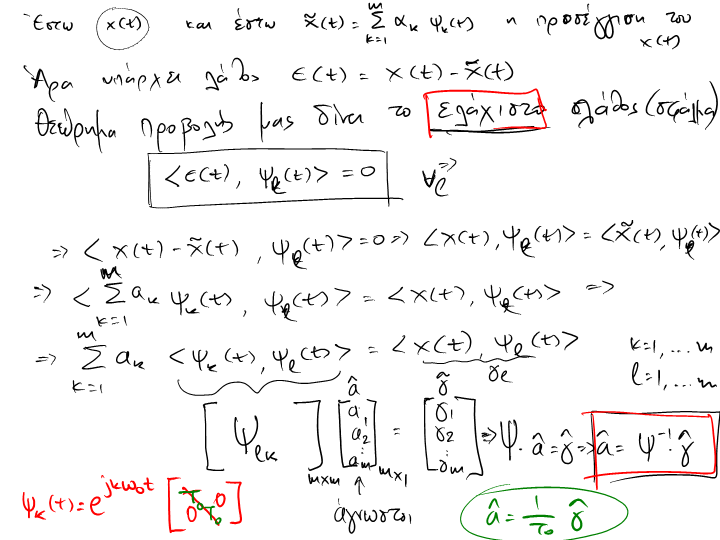 Έστω x(t) και έστω x̃(t) = Σ_{k=1}^{m} α_k ψ_k(t) η προσέγγιση του x(t)
Άρα υπάρχει λάθος ε(t) = x(t) - x̃(t)
Θεώρημα προβολής μας δίνει το ελάχιστο λάθος (σφάλμα)
<ε(t), ψ_ℓ(t)> = 0 ∀ℓ ⇒
⇒ < x(t) - x̃(t), ψ_ℓ(t)> = 0 ⇒ <x(t), ψ_ℓ(t)> = <x̃(t), ψ_ℓ(t)>
⇒ < Σ_{k=1}^{m} a_k ψ_k(t), ψ_ℓ(t)> = <x(t), ψ_ℓ(t)> ⇒
⇒ Σ_{k=1}^{m} a_k <ψ_k(t), ψ_ℓ(t)> = <x(t), ψ_ℓ(t)> γ_ℓ k=1,...m
ℓ=1,...m
[Ψ_{ℓk}]_{m×m} â [a_1 a_2 ⋮ a_m]_{m×1} = γ̃ [γ_1 γ_2 ⋮ γ_m] ⇒ Ψ · â = γ̂ ⇒ â = Ψ^{-1} · γ̂
ψ_k(t) = e^{jkω_0t} [T_0 0 0 T_0] άγνωστοι â = 1/T_0 γ̂